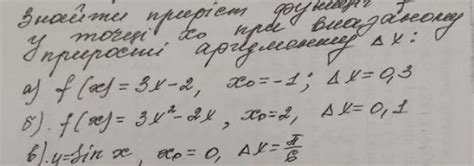 Знайти приріст функції
у точці x₀ при вказаному
прирості аргументу Δx:
а) f(x) = 3x-2, x₀ = -1; Δx = 0,3
б). f(x) = 3x² - 2x, x₀ = 2, Δx = 0,1
в). y = sin x, x₀ = 0, Δx = π/6